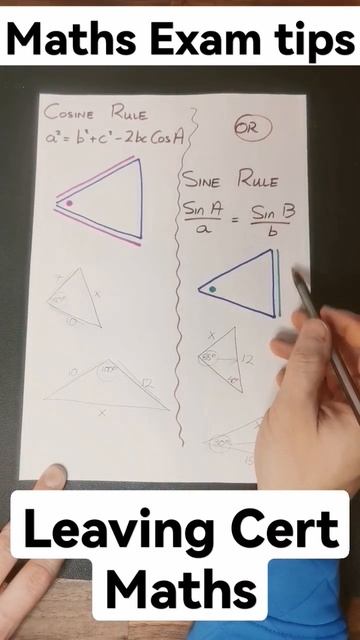 Maths Exam tips
COSINE RULE
a² = b² + c² - 2bc Cos A
OR
SINE RULE
Sin A
a
=
Sin B
b
x
x
10
10
100°
12
x
x
85°
12
30°
15
Leaving Cert
Maths